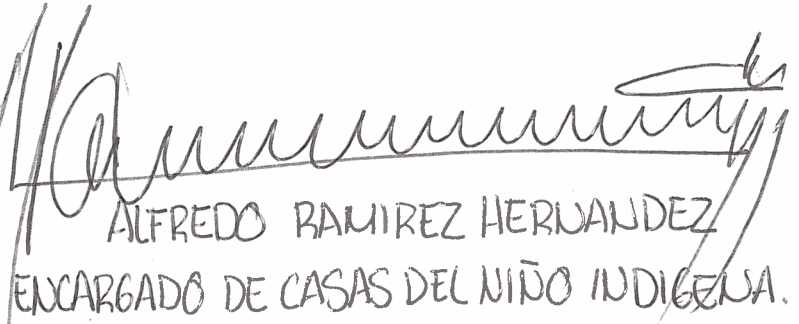 ALFREDO RAMIREZ HERNANDEZ
ENCARGADO DE CASAS DEL NIÑO INDIGENA.